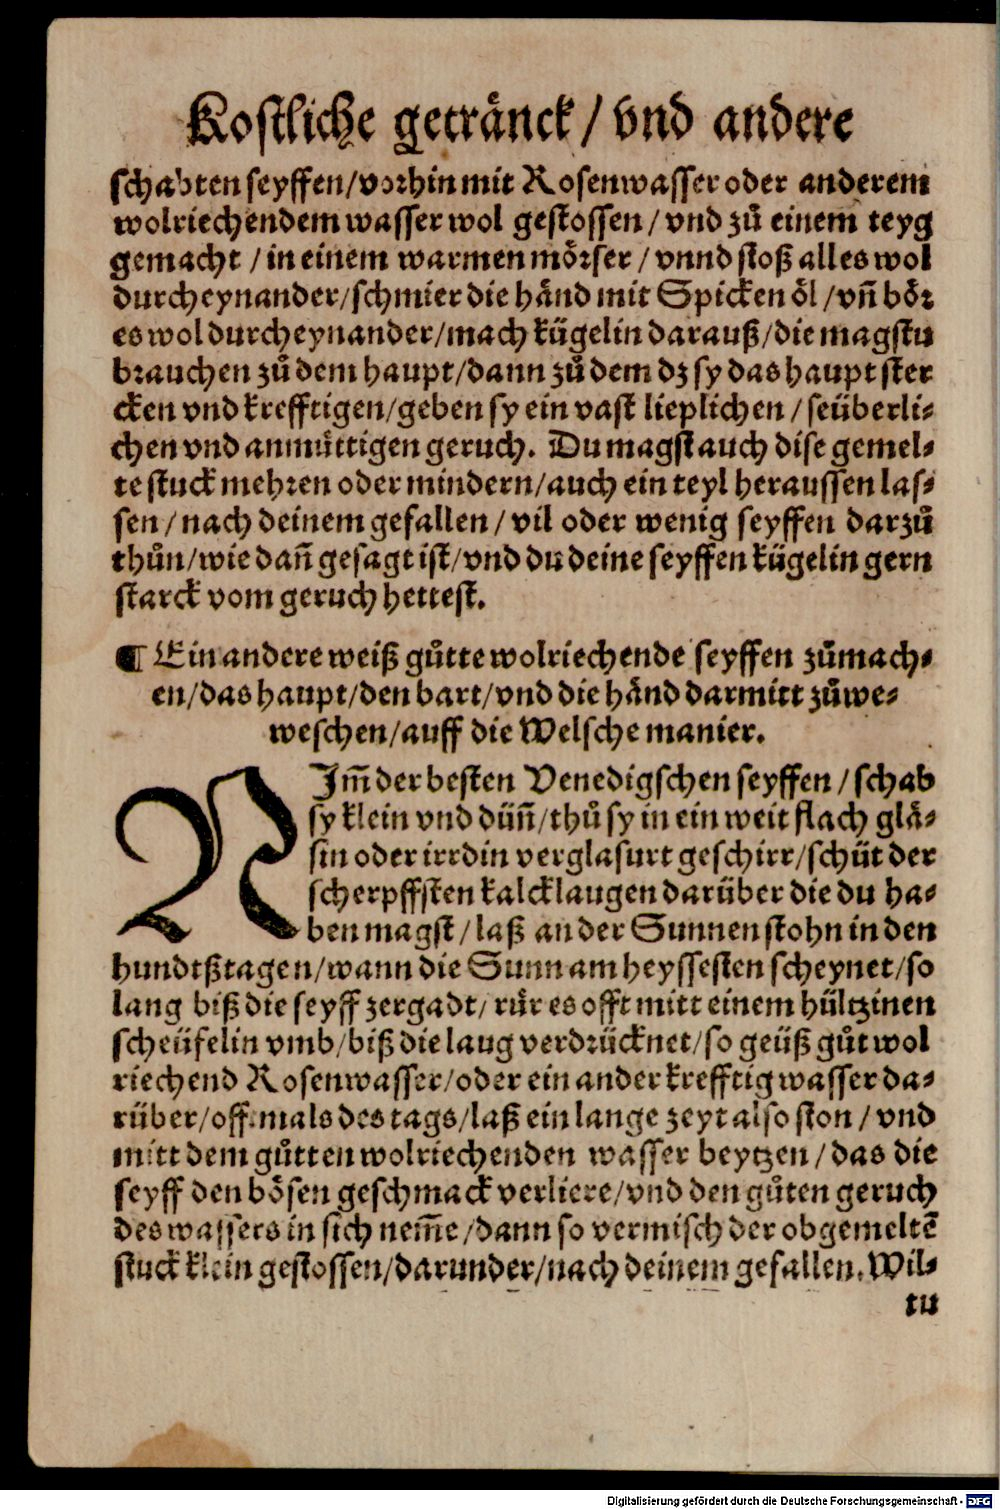 Kostliche getränck / vnd andere
schabten seyffen/vorhin mit Rosenwasser oder anderem
wolriechendem wasser wol gestossen / vnd zů einem teyg
gemacht / in einem warmen mörser / vnnd stoß alles wol
durcheynander/schmier die händ mit Spicken öl / vn̄ bör
es wol durcheynander/mach kügelin darauß/die magstu
brauchen zů dem haupt/dann zů dem dz sy das haupt ster
cken vnd krefftigen/geben sy ein vast lieplichen / seüberli⸗
chen vnd anmůttigen geruch. Du magst auch dise gemel⸗
te stuck mehren oder mindern/auch ein teyl heraussen las⸗
sen / nach deinem gefallen / vil oder wenig seyffen darzů
thůn/wie dan̄ gesagt ist/vnd du deine seyffen kügelin gern
starck vom geruch hettest.
¶ Ein andere weiß gůtte wolriechende seyffen zůmach⸗
en/das haupt/den bart/vnd die händ darmitt zůwe⸗
weschen/auff die Welsche manier.
NIm̄ der besten Venedigschen seyffen / schab
sy klein vnd dün̄/thů sy in ein weit flach glä⸗
sin oder irrdin verglasurt geschirr/schüt der
scherpffsten kalcklaugen darüber die du ha⸗
ben magst / laß an der Sunnen stohn in den
hundtßtagen/wann die Sunn am heyssesten scheynet/so
lang biß die seyff zergadt/ růr es offt mitt einem hültzinen
scheüfelin vmb/biß die laug verdrücknet/so geüß gůt wol
riechend Rosenwasser/oder ein ander krefftig wasser da⸗
rüber/offtmals des tags/laß ein lange zeyt also ston / vnd
mitt dem gůtten wolriechenden wasser beytzen / das die
seyff den bösen geschmack verliere/vnd den gůten geruch
des wassers in sich nem̄e/dann so vermisch der obgemeltē
stuck klein gestossen/darunder/nach deinem gefallen. Wil⸗
tu
Digitalisierung gefördert durch die Deutsche Forschungsgemeinschaft - DFG